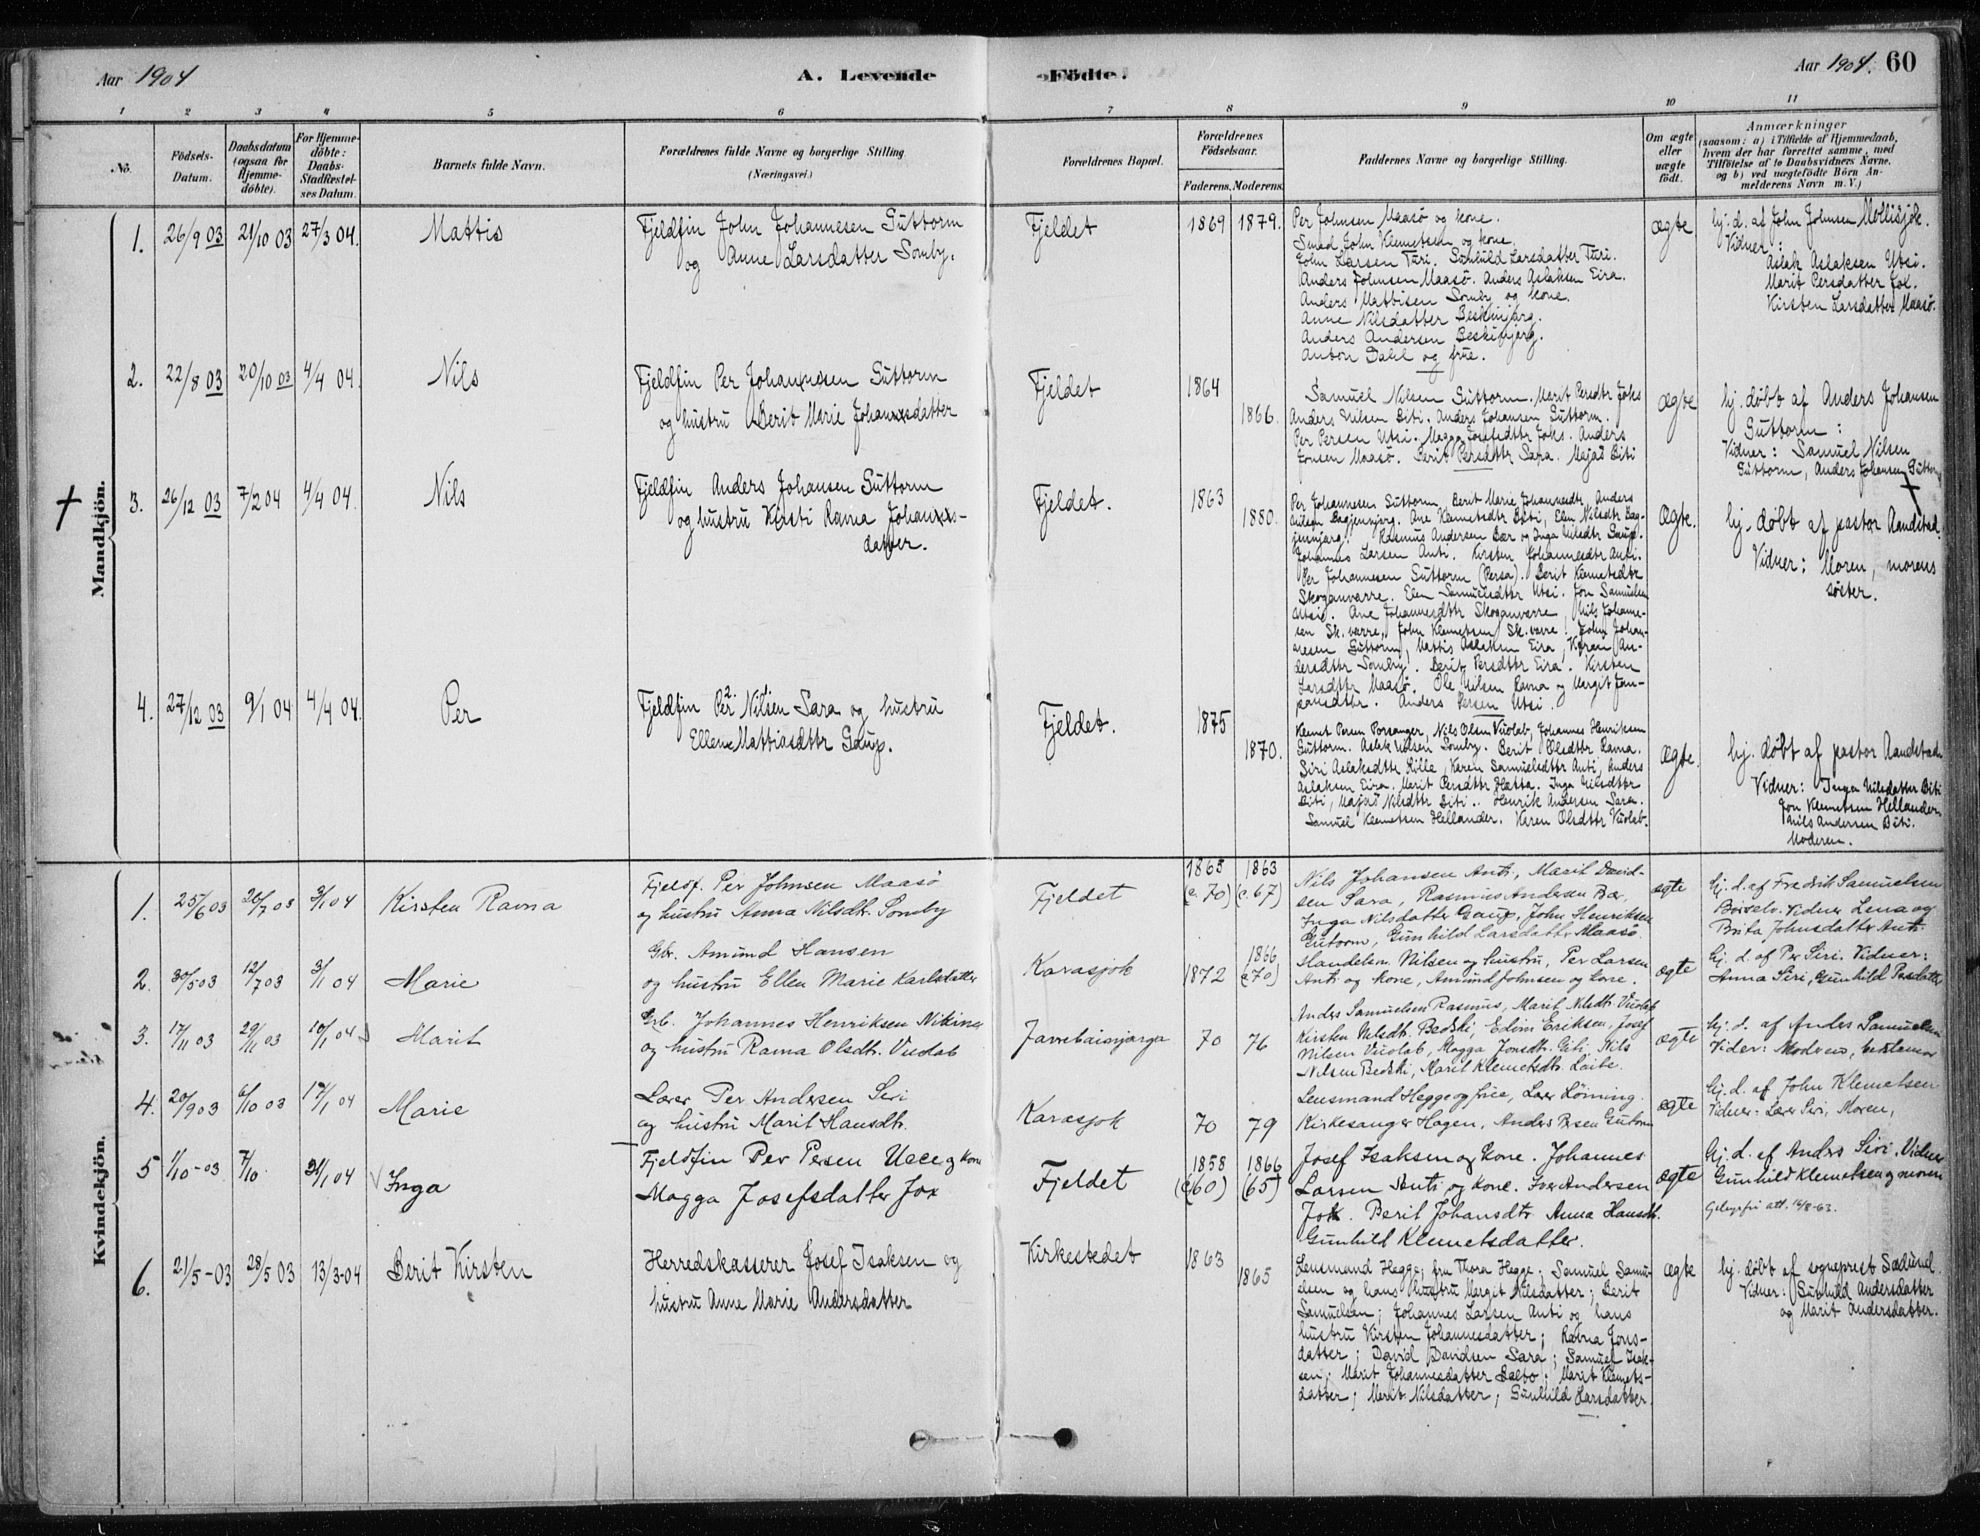 Aar 1904 A. Levende Födte. Aar 1904. 60
1 2 3 4 5 6 7 8 9 10 11
No. Födsels-Datum. Daabsdatum (ogsaa for Hjemme-döbte). For Hjemme-döbte: Daabs-Stadfæstelses Datum. Barnets fulde Navn. Forældrenes fulde Navne og borgerlige Stilling (Næringsvei.) Forældrenes Bopæl. Forældrenes Födselsaar. Faderens. Moderens. Faddernes Navne og borgerlige Stilling. Om ægte eller uægte födt. Anmærkninger (saasom: a) i Tilfælde af Hjemmedaab, hvem der har forrettet samme, med Tilföielse af to Daabsvidners Navne, og b) ved uægtefödte Börn Anmelderens Navn m. V.)
Mandkjön.
1. 26/9 03 21/10 03 27/3 04. Mattis
Fjeldfin John Johannesen Guttorm
og Anne Larsdatter Somby.
Fjeldet 1869 1879.
Per Johnsen Maasø og kone.
Smed John Klemetsen og kone.
John Larsen Turi. Gunhild Larsdatter Turi.
Anders Johnsen Maasø. Anders Aslaksen Eira.
Anders Mathisen Somby og kone.
Anne Nilsdatter Beskinjarg.
Anders Andersen Beskinjarg.
Anton Dahl og frue.
Ægte
hj. d. af John Johnsen Mollisjok.
Vidner:
Aslak Aslaksen Utsi.
Marit Persdatter Jox.
Kirsten Larsdatter Maasø.
2. 22/8 03 20/10 03 4/4 04. Nils
Fjeldfin Per Johannesen Guttorm
og hustru Berit Marie Johannesdatter
Fjeldet 1864 1866.
Samuel Nilsen Guttorm. Marit Persdtr Joks
Anders Nilsen Biti. Anders Johansen Guttorm.
Per Persen Utsi. Magga Josefsdttr Joks. Anders
Jonsen Maasø. Berit Persdttr Sara. Majas Biti
Ægte
hj. døbt af Anders Johansen
Guttorm:
Vidner: Samuel Nilsen
Guttorm, Anders Johansen Guttorm
3. 26/12 03 7/2 04 4/4 04. Nils
Fjeldfin Anders Johansen Guttorm
og hustru Kirsti Ravna Johannes-
datter.
Fjeldet. 1863 1880.
Per Johannesen Guttorm, Berit Marie Johannesdtr, Anders
Nilsen Bagjenjarg. Ane Klemetsdtr Biti, Elen Nilsdtr Bag-
jennjarg. Rasmus Andersen Bær og Inga Nilsdtr Gaup.
Johannes Larsen Anti. Kirsten Johannesdtr Anti.
Per Johannesen Guttorm (Persa). Berit Klemetsdtr
Skoganvarre. Elen Samuelsdtr Utsi. Jon Samuelsen
Utsi. Ane Johannesdttr Skoganvarre, Nils Johanne-
sen Sk.varre, John Klemetsen Sk.varre. John Johan-
nesen Guttorm, Mattis Aslaksen Eira, Karen An-
dersdttr Somby. Berit Persdttr Eira. Kirsten
Larsdttr Maasø. Ole Nilsen Ravna og Margit
Anders Persen Utsi.
Ægte.
hj. døbt af pastor Aandstad.
Vidner: Moren, morens
søster.
4. 27/12 03 9/1 04 4/4 04. Per
Fjeldfin Per Nilsen Sara og hustru
Ellen Mattiasdttr Gaup.
Fjeldet. 1875 1870.
Klemet Persen Porsanger, Nils Olsen Vuolab, Johannes Henriksen
Guttorm. Aslak Nilsen Somby. Berit Olsdttr Ravna.
Siri Aslaksdttr Kille, Karen Samuelsdttr Anti, Anders
Aslaksen Eira. Marit Persdttr Hætta. Inga Nilsdttr
Biti, Majas Nilsdttr Biti. Henrik Andersen Sara.
Samuel Klemetsen Hellander. Karen Olsdttr Vuolab.
Ægte.
hj. døbt af pastor Aandstad
Vidner: Inga Nilsdatter Biti
Jon Klemetsen Hellander
Nils Andersen Biti.
Moderen.
Kvindekjön.
1. 25/6 03 26/7 03 3/1 04 Kirsten Ravna
Fjeldf. Per Johnsen Maasø
og hustru Anna Nilsdtr. Somby
Fjeldet 1865 (c. 70) 1863 (c. 67)
Nils Johansen Anti, Marit David-
sen Sara, Rasmus Andersen Bær,
Inga Nilsdatter Gaup, John Henriksen
Gutorm, Gunhild Larsdattr Maasø.
ægte
hj. d. af Fredrik Samuelsen
Børselv. Vidner Lena og
Brita Johnsdatter Anti
2. 30/5 03 12/7 03 3/1 04 Marie
Gbr. Amund Hansen
og hustru Ellen Marie Karlsdatter
Karasjok 1872 1866 (c70)
Handelsm. Nilsen og hustru, Per Larsen
Anti og kone, Amund Johnsen og kone.
ægte
hj. d. af Per Siri. Vidner:
Anna Siri, Gunhild Persdatter
3. 17/11 03 29/11 03 10/1 04 Marit
Grb. Johannes Henriksen Nikina
og hustru Ravna Olsdtr. Vuolab
Javrebainjarga 70 76
Anders Samuelsen Rasmus, Marit Nilsdtr. Vuolab
Kirsten Nilsdtr. Bedski, Edvin Eriksen, Josef
Nilsen Vuolab, Magga Jonsdtr. Biti. Nils
Nilsen Bedski, Marit Klemetsdtr. Laiti.
ægte
hj. d. af Anders Samuelsen
Vidner: Modren, bedstemor
4. 20/9 03 6/10 03 17/1 04 Marie
Lærer Per Andersen Siri
og hustru Marit Hansdtr.
Karasjok 70 79
Lensmand Hegge og frue, Lærer Lørning.
Kirkesanger Hagen, Anders Persen Gutorm
ægte
hj. d. af John Klemetsen
Vidner: Lærer Siri, Moren,
5 1/10-03 7/10 24/1 04 Inga
Fjeldfin Per Persen Ucce og kone
Magga Josefsdatter Jox
Fjeldet 1858 (c60) 1866 (65)
Josef Isaksen og kone. Johannes
Larsen Anti og kone. Iver Andersen
Jok. Berit Johansdtr. Anna Hansdtr.
Gunhild Klemetsdatter.
ægte
hj. d. af Anders Siri. Vidner
Gunhild Klemetsen og moren
Gebyrfri att. 14/8-63.
6. 21/5-03 28/5 03 13/3-04 Berit Kirsten
Herredskasserer Josef Isaksen og
hustru Anne Marie Andersdatter
Kirkestedet 1863 1865
Lensmand Hegge; fru Thora Hegge; Samuel Samu-
elsen og hans hustru Margit Nilsdatter; Berit
Samuelsen; Johannes Larsen Anti og hans
hustru Kirsten Johannesdatter; Ravna Jons-
datter; David Davidsen Sara; Samuel Isak-
sen; Marit Johannesdatter Balto; Marit Klemets-
datter; Marit Nilsdatter; Gunhild Larsdatter.
ægte
hj. døbt af sogneprest Sødund
Vidner: Gunhild Andersdatter
og Marit Andersdatter.